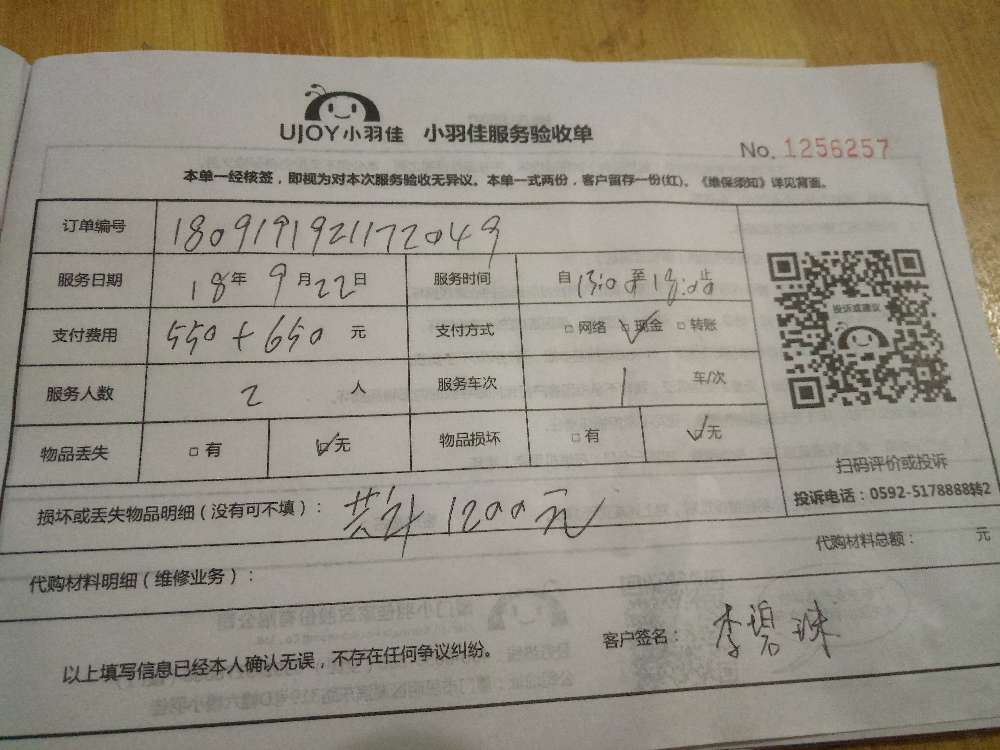 UJOY小羽佳 小羽佳服务验收单
No. 1256257
本单一经核签，即视为对本次服务验收无异议。本单一式两份，客户留存一份(红)。《维保须知》详见背面。
订单编号 1809191921172049
服务日期 18年 9月22日 服务时间 自13:00至18:00止
支付费用 550+650 元 支付方式 □网络 ☑现金 □转账
服务人数 2 人 服务车次 1 车/次
物品丢失 □有 ☑无 物品损坏 □有 ☑无
投诉或建议
扫码评价或投诉
投诉电话：0592-5178888转2
损坏或丢失物品明细（没有可不填）： 共计1200元
代购材料明细（维修业务）： 代购材料总额： 元
以上填写信息已经本人确认无误，不存在任何争议纠纷。 客户签名： 李碧珠